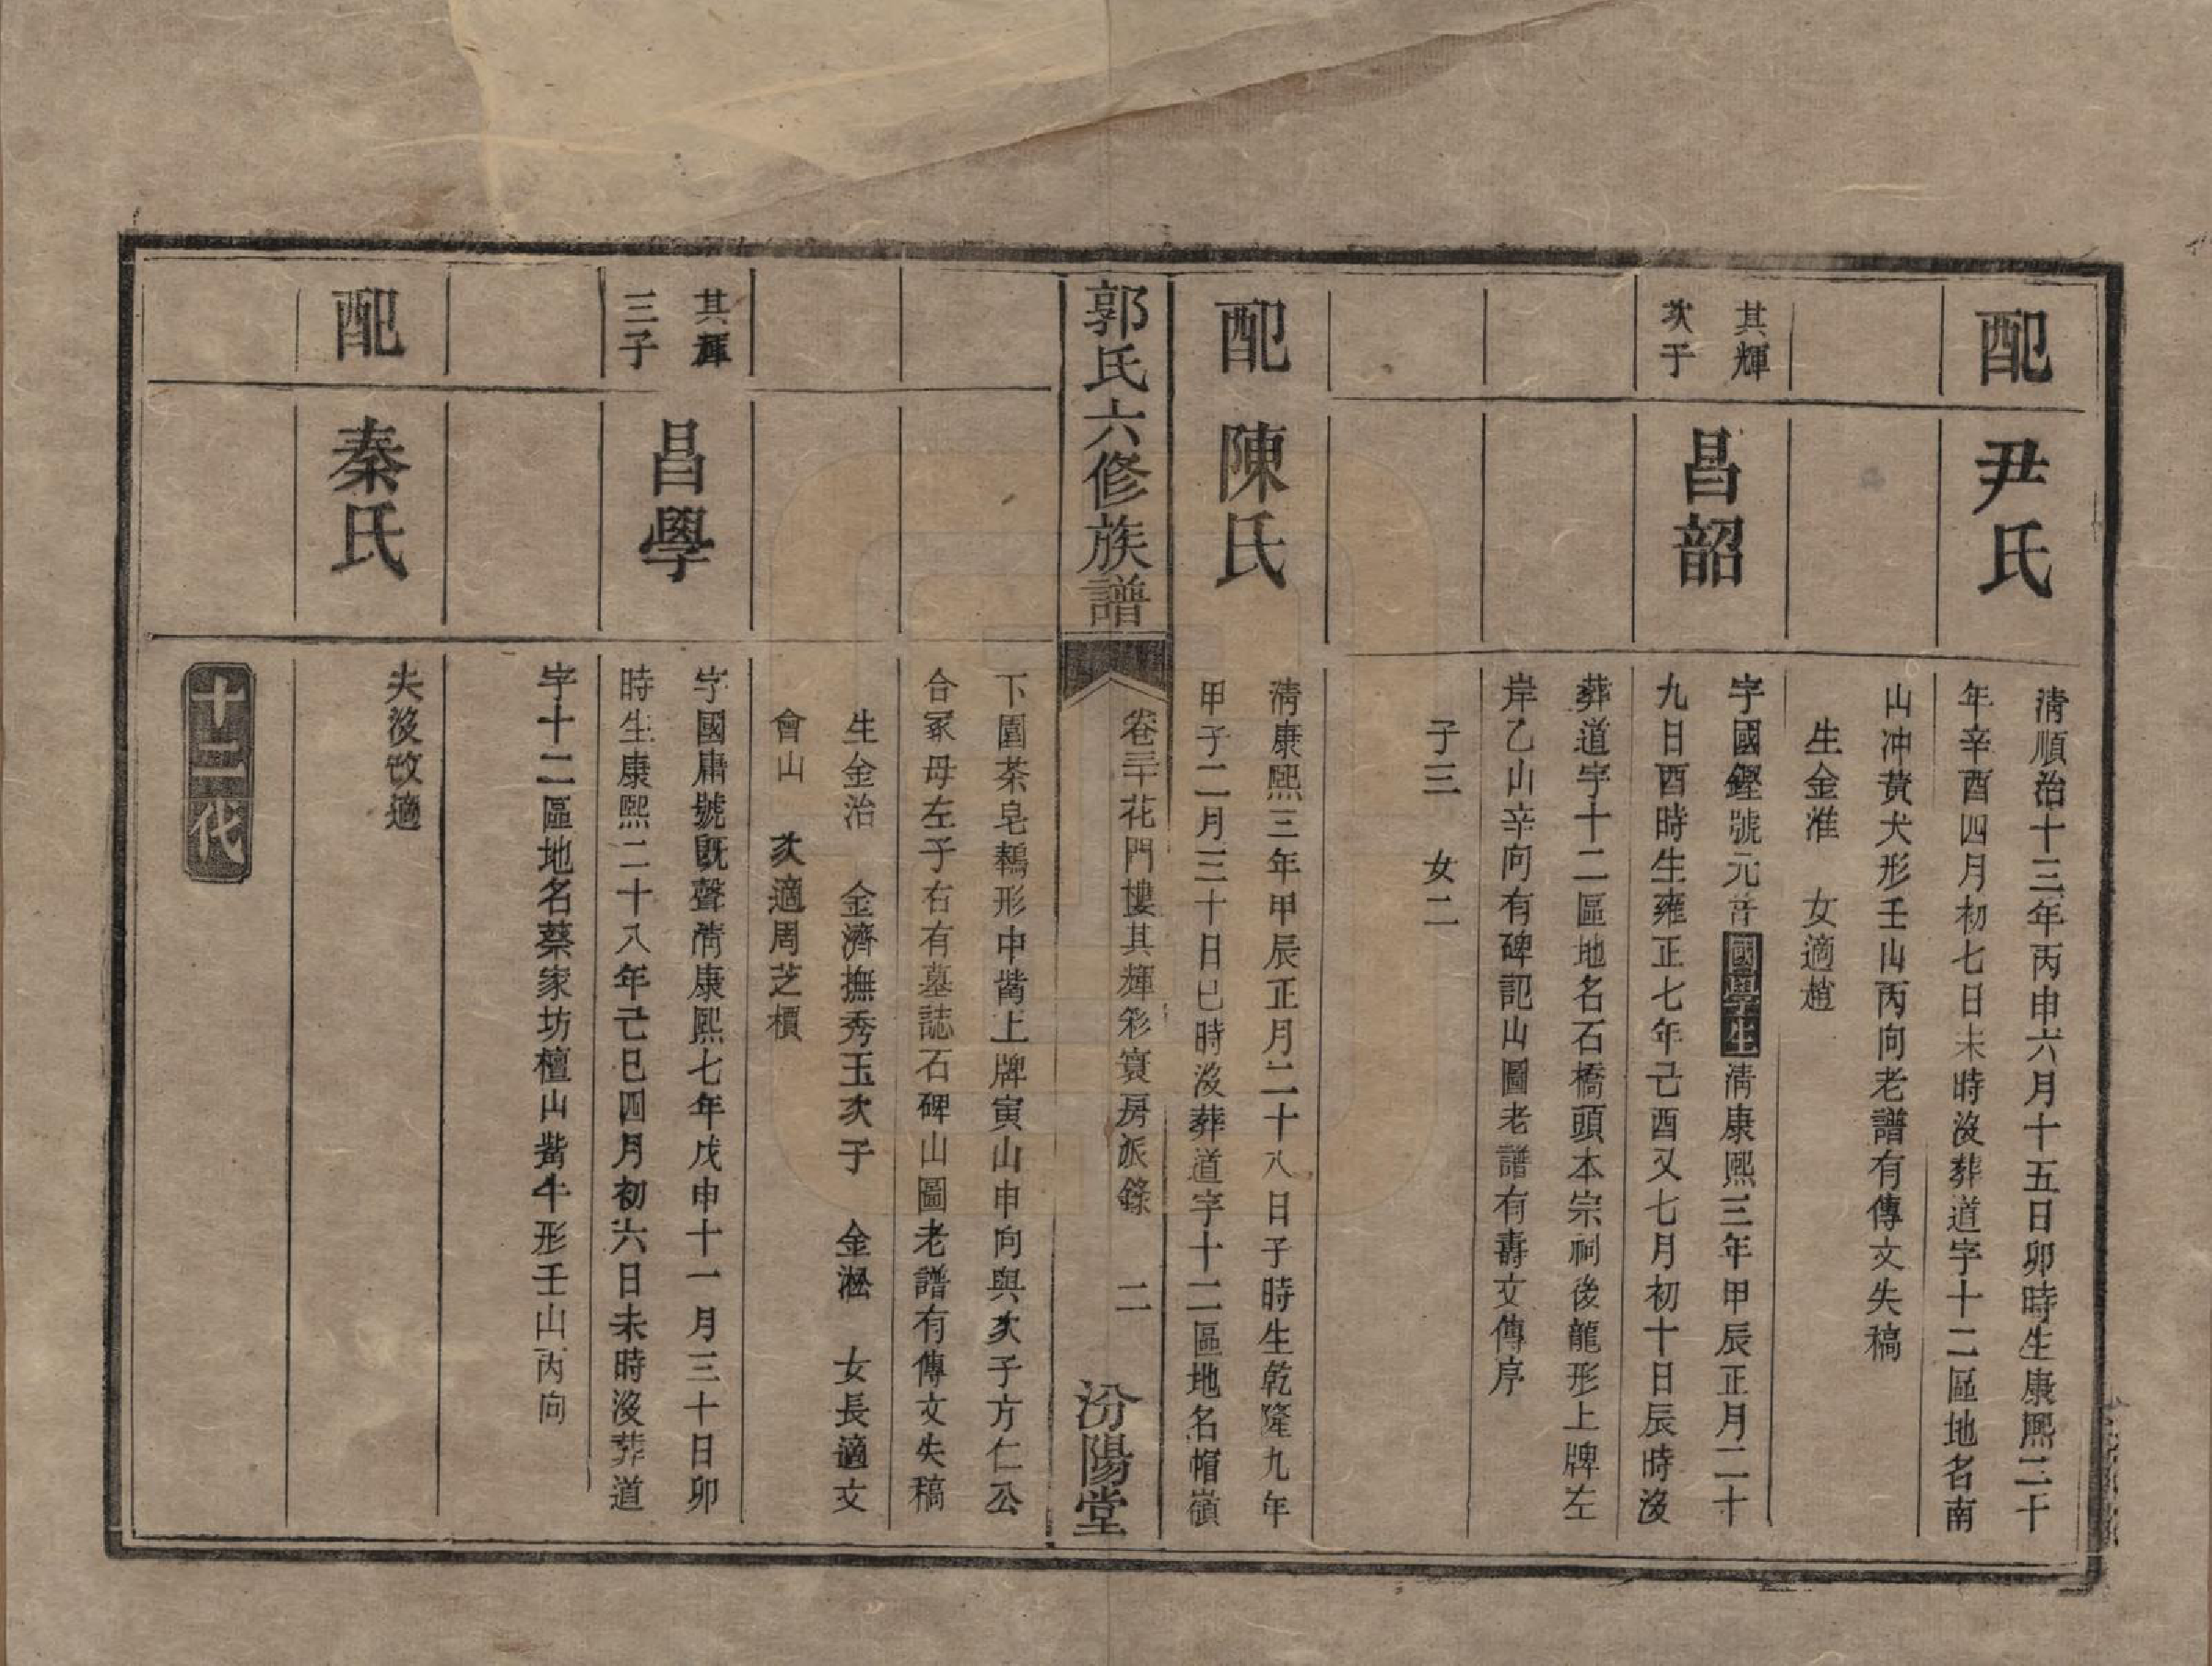 配
尹氏
清順治十三年丙申六月十五日卯時生康熙二十
年辛酉四月初七日未時沒葬道字十二區地名南
山冲黃犬形壬山丙向老譜有傳文失稿
生金淮　女適趙
其輝
次子
昌韶
字國鏗號元音國學生清康熙三年甲辰正月二十
九日酉時生雍正七年己酉又七月初十日辰時沒
葬道字十二區地名石橋頭本宗祠後龍形上牌左
岸乙山辛向有碑記山圖老譜有壽文傳序
子三　女二
配
陳氏
清康熙三年甲辰正月二十八日子時生乾隆九年
甲子二月三十日巳時沒葬道字十二區地名帽嶺
郭氏六修族譜
卷三十花門樓其輝彩寰房派錄　二
汾陽堂
下園茶皂鵝形中嘴上牌寅山申向與次子方仁公
合冢母左子右有墓誌石碑山圖老譜有傳文失稿
生金治　金濟撫秀玉次子　金淞　女長適文
會山　次適周芝檟
其輝
三子
昌學
字國庸號既聲清康熙七年戊申十一月三十日卯
時生康熙二十八年己巳四月初六日未時沒葬道
字十二區地名蔡家坊檀山嘴牛形壬山丙向
配
秦氏
夫沒改適
十二代